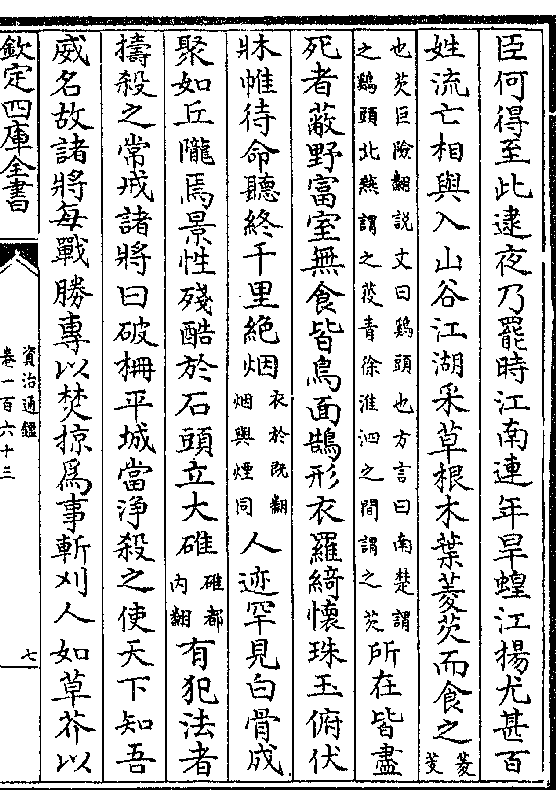 臣何得至此逮夜乃罷時江南連年旱蝗江揚尤甚百
姓流亡相與入山谷江湖采草根木葉菱芡而食之菱芰
也芡巨險翻説文曰鷄頭也方言曰南楚謂
之鷄頭北燕謂之䓈青徐淮泗之間謂之芡
所在皆盡
死者蔽野富室無食皆鳥面鵠形衣羅綺懷珠玉俯伏
牀帷待命聽終千里絶烟衣於既翻烟與煙同人迹罕見白骨成
聚如丘隴焉景性殘酷於石頭立大碓碓都内翻有犯法者
擣殺之常戒諸將曰破柵平城當淨殺之使天下知吾
威名故諸將每戰勝專以焚掠爲事斬刈人如草芥以
欽定四庫全書
資治通鑑
卷一百六十三
七